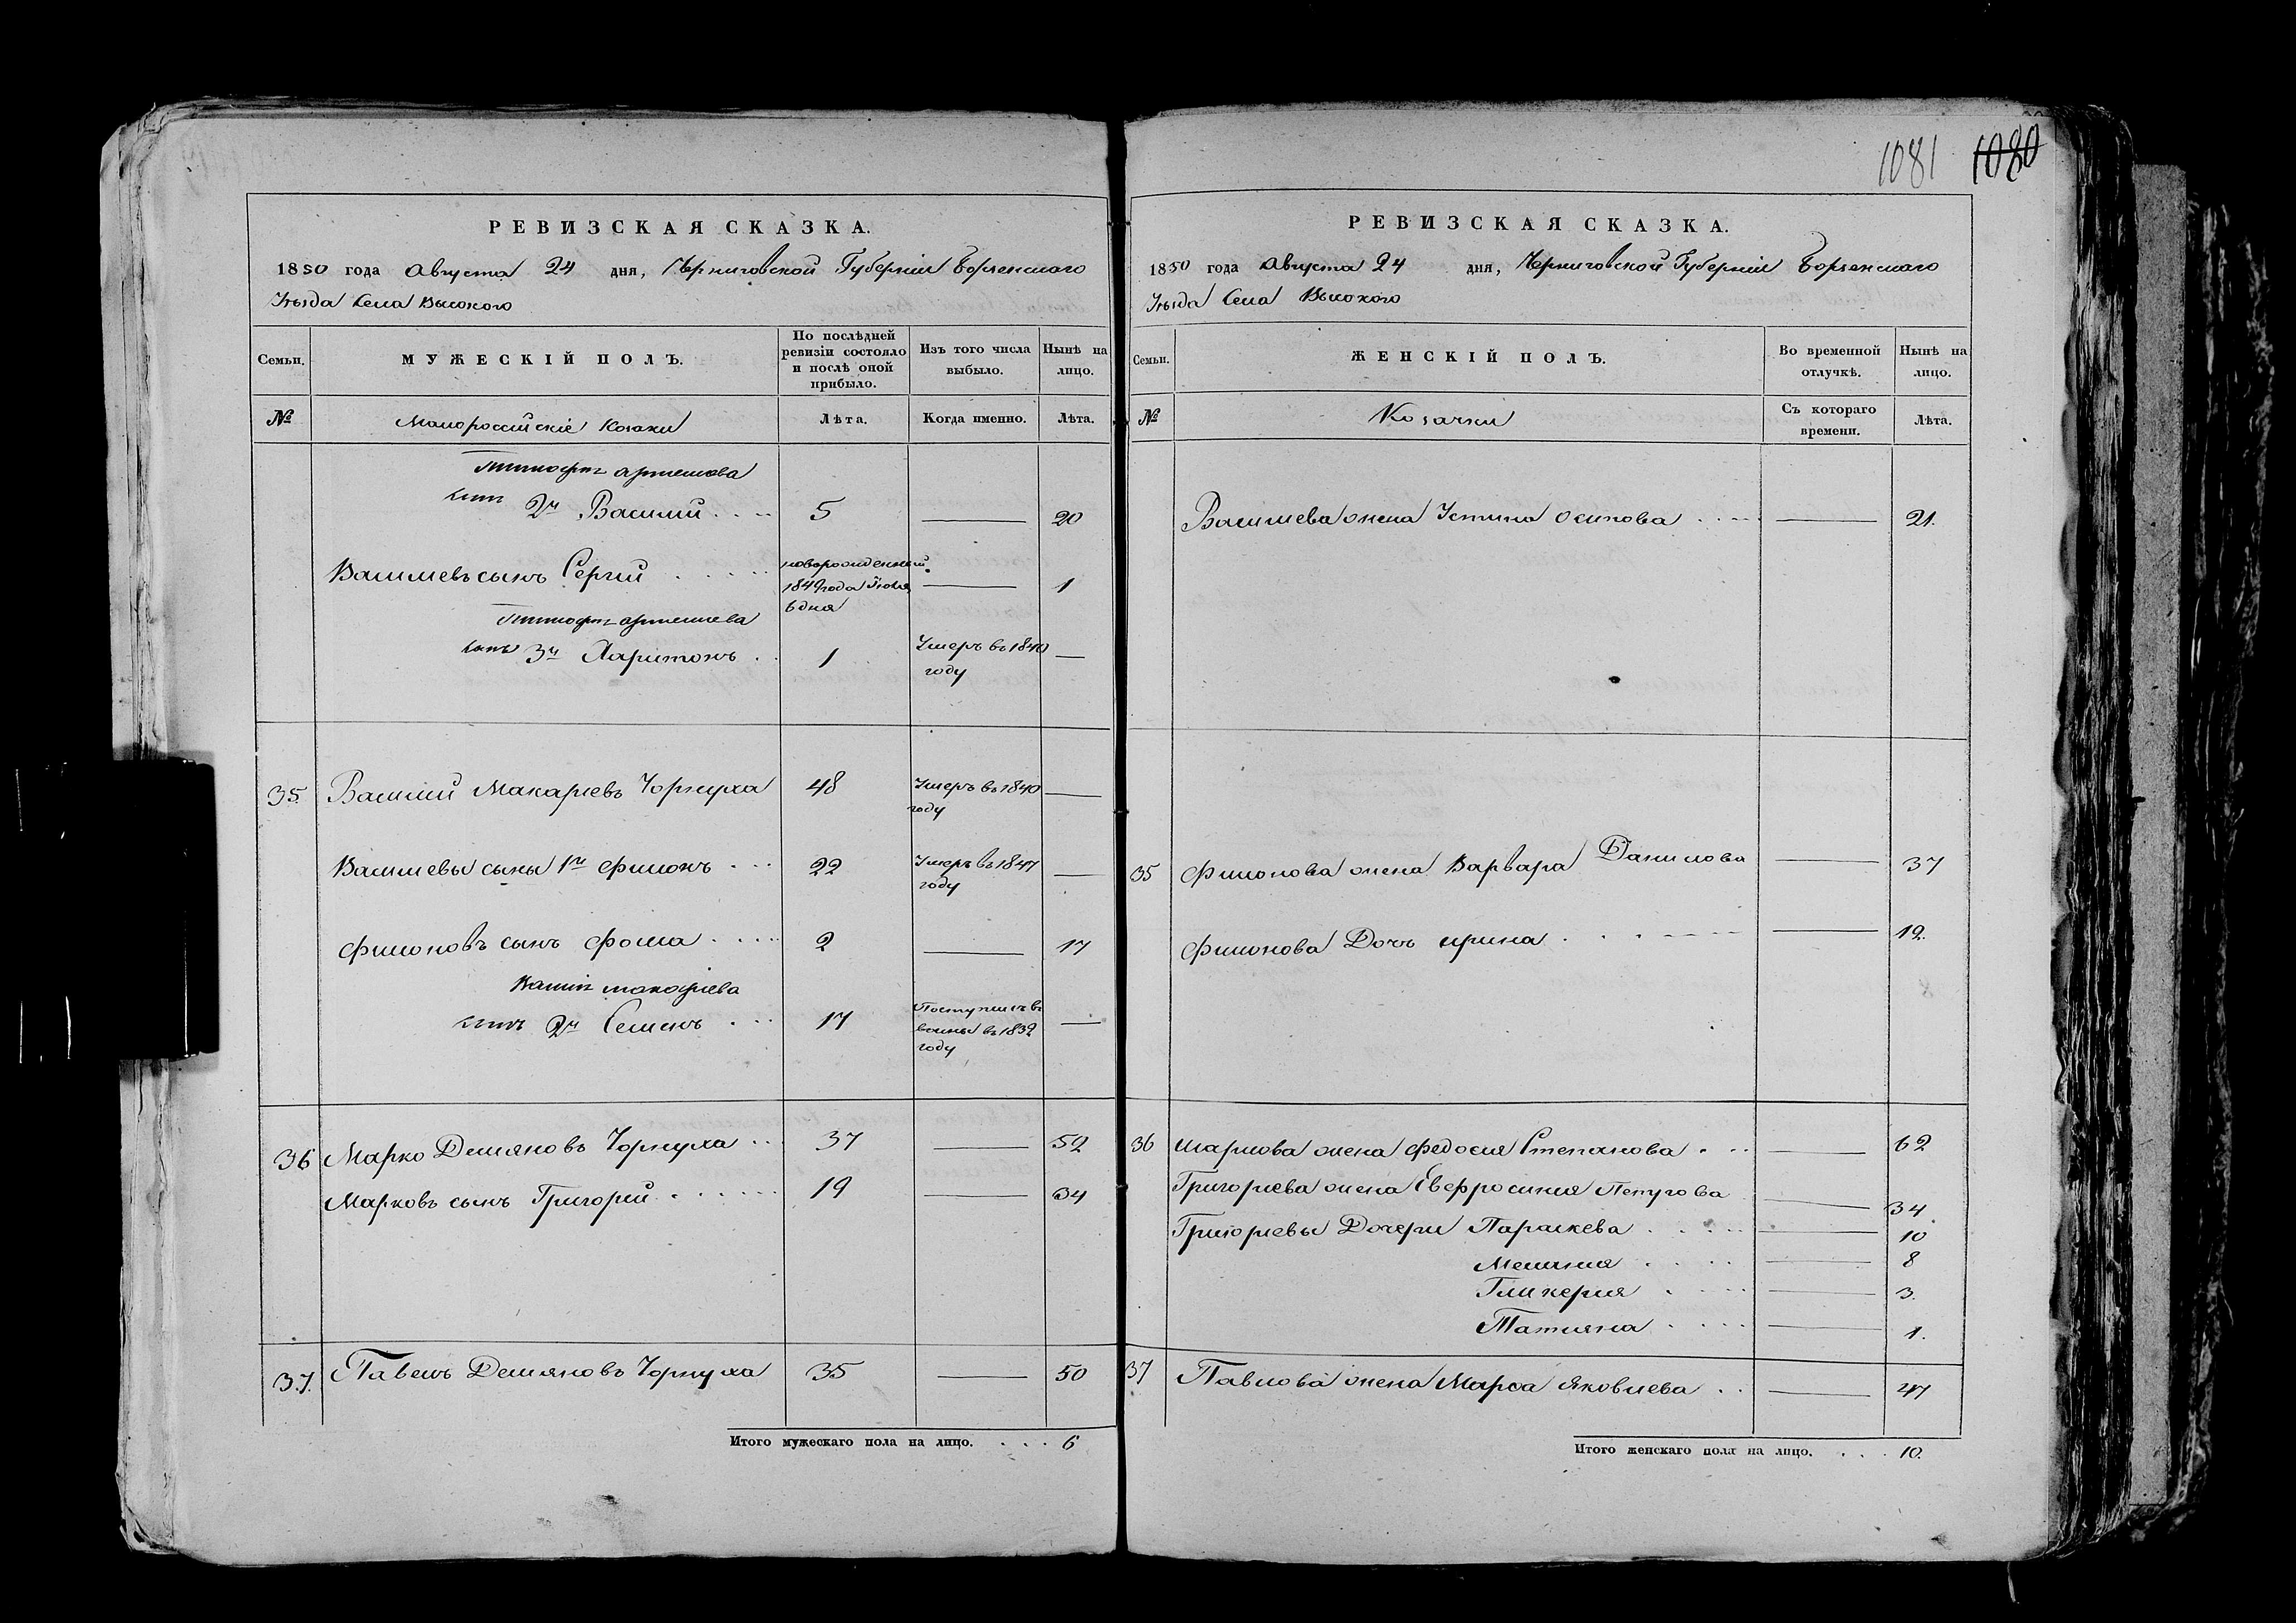 1081 1080
РЕВИЗСКАЯ СКАЗКА.
1850 года Августа 24 дня, Черниговской Губерніи Борзенскаго
Уѣзда Села Высокого
Семьи.
МУЖЕСКІЙ ПОЛЪ.
По послѣдней
ревизіи состояло
и послѣ оной
прибыло.
Изъ того числа
выбыло.
Нынѣ на
лицо.
№
Малороссійскіе Козаки
Лѣта.
Когда именно.
Лѣта.
сынъ 2й Василий 5 — 20
Васильевъ сынъ Сергий новорожденный 1849 года Июля 6 дня — 1
сынъ 3й Харитонъ 1 Умеръ въ 1840 году —
35 Василий Макариевъ Чорнуха 48 Умеръ въ 1840 году —
Васильевы сыны 1й Филонъ 22 Умеръ въ 1847 году —
Филоновъ сынъ Фома 2 — 17
сынъ 2й Семенъ 17 Поступилъ въ 1832 году —
36 Марко Демяновъ Чорнуха 37 — 52
Марковъ сынъ Григорий 19 — 34
37. Павелъ Демяновъ Чорнуха 35 — 50
Итого мужескаго пола на лицо. 6
РЕВИЗСКАЯ СКАЗКА.
1850 года Августа 24 дня, Черниговской Губерніи Борзенскаго
Уѣзда Села Высокого
Семьи.
ЖЕНСКІЙ ПОЛЪ.
Во временной
отлучкѣ.
Нынѣ на
лицо.
№
Козачки
Съ котораго
времени.
Лѣта.
Васильева жена Устина Осипова — 21.
35 Филонова жена Варвара Данилова — 37
Филонова Дочь Ирина — 19.
36 Маркова жена Федосия Степанова — 62
Григориева жена Евфросиния — 34.
Григориевы Дочери Параскева — 10
Мелания — 8
Гликерия — 3.
Татияна — 1.
37 Павлова жена Марфа Яковлева — 47
Итого женскаго пола на лицо. 10.